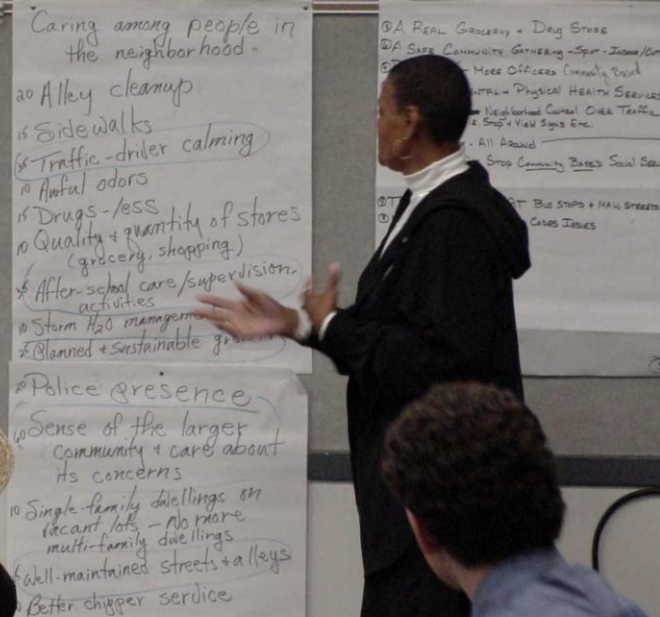 Caring among people in
the neighborhood.
20 Alley cleanup
15 Sidewalks
Traffic-driver calming
10 Awful odors
15 Drugs-/ess
10 Quality + quantity of stores
(grocery, shopping)
After-school care/supervision,
activities
10 Storm H2O managem
Planned + sustainable gro
Police presence
Sense of the larger
community + care about
its concerns
10 Single-family dwellings on
vacant lots - No more
multi-family dwellings
Well-maintained streets + alleys
Better chipper service
① A Real Grocery + Drug Store
② A Safe Community Gathering-Spot - Indoor/Out
More Officers Community Based
ntal + Physical Health Services
Neighborhood Control Over Traffic
Stop + Yield Signs Etc.
- All Around
Stop Community Based Social Ser
Bus Stops + Main Streets
Codes Issues